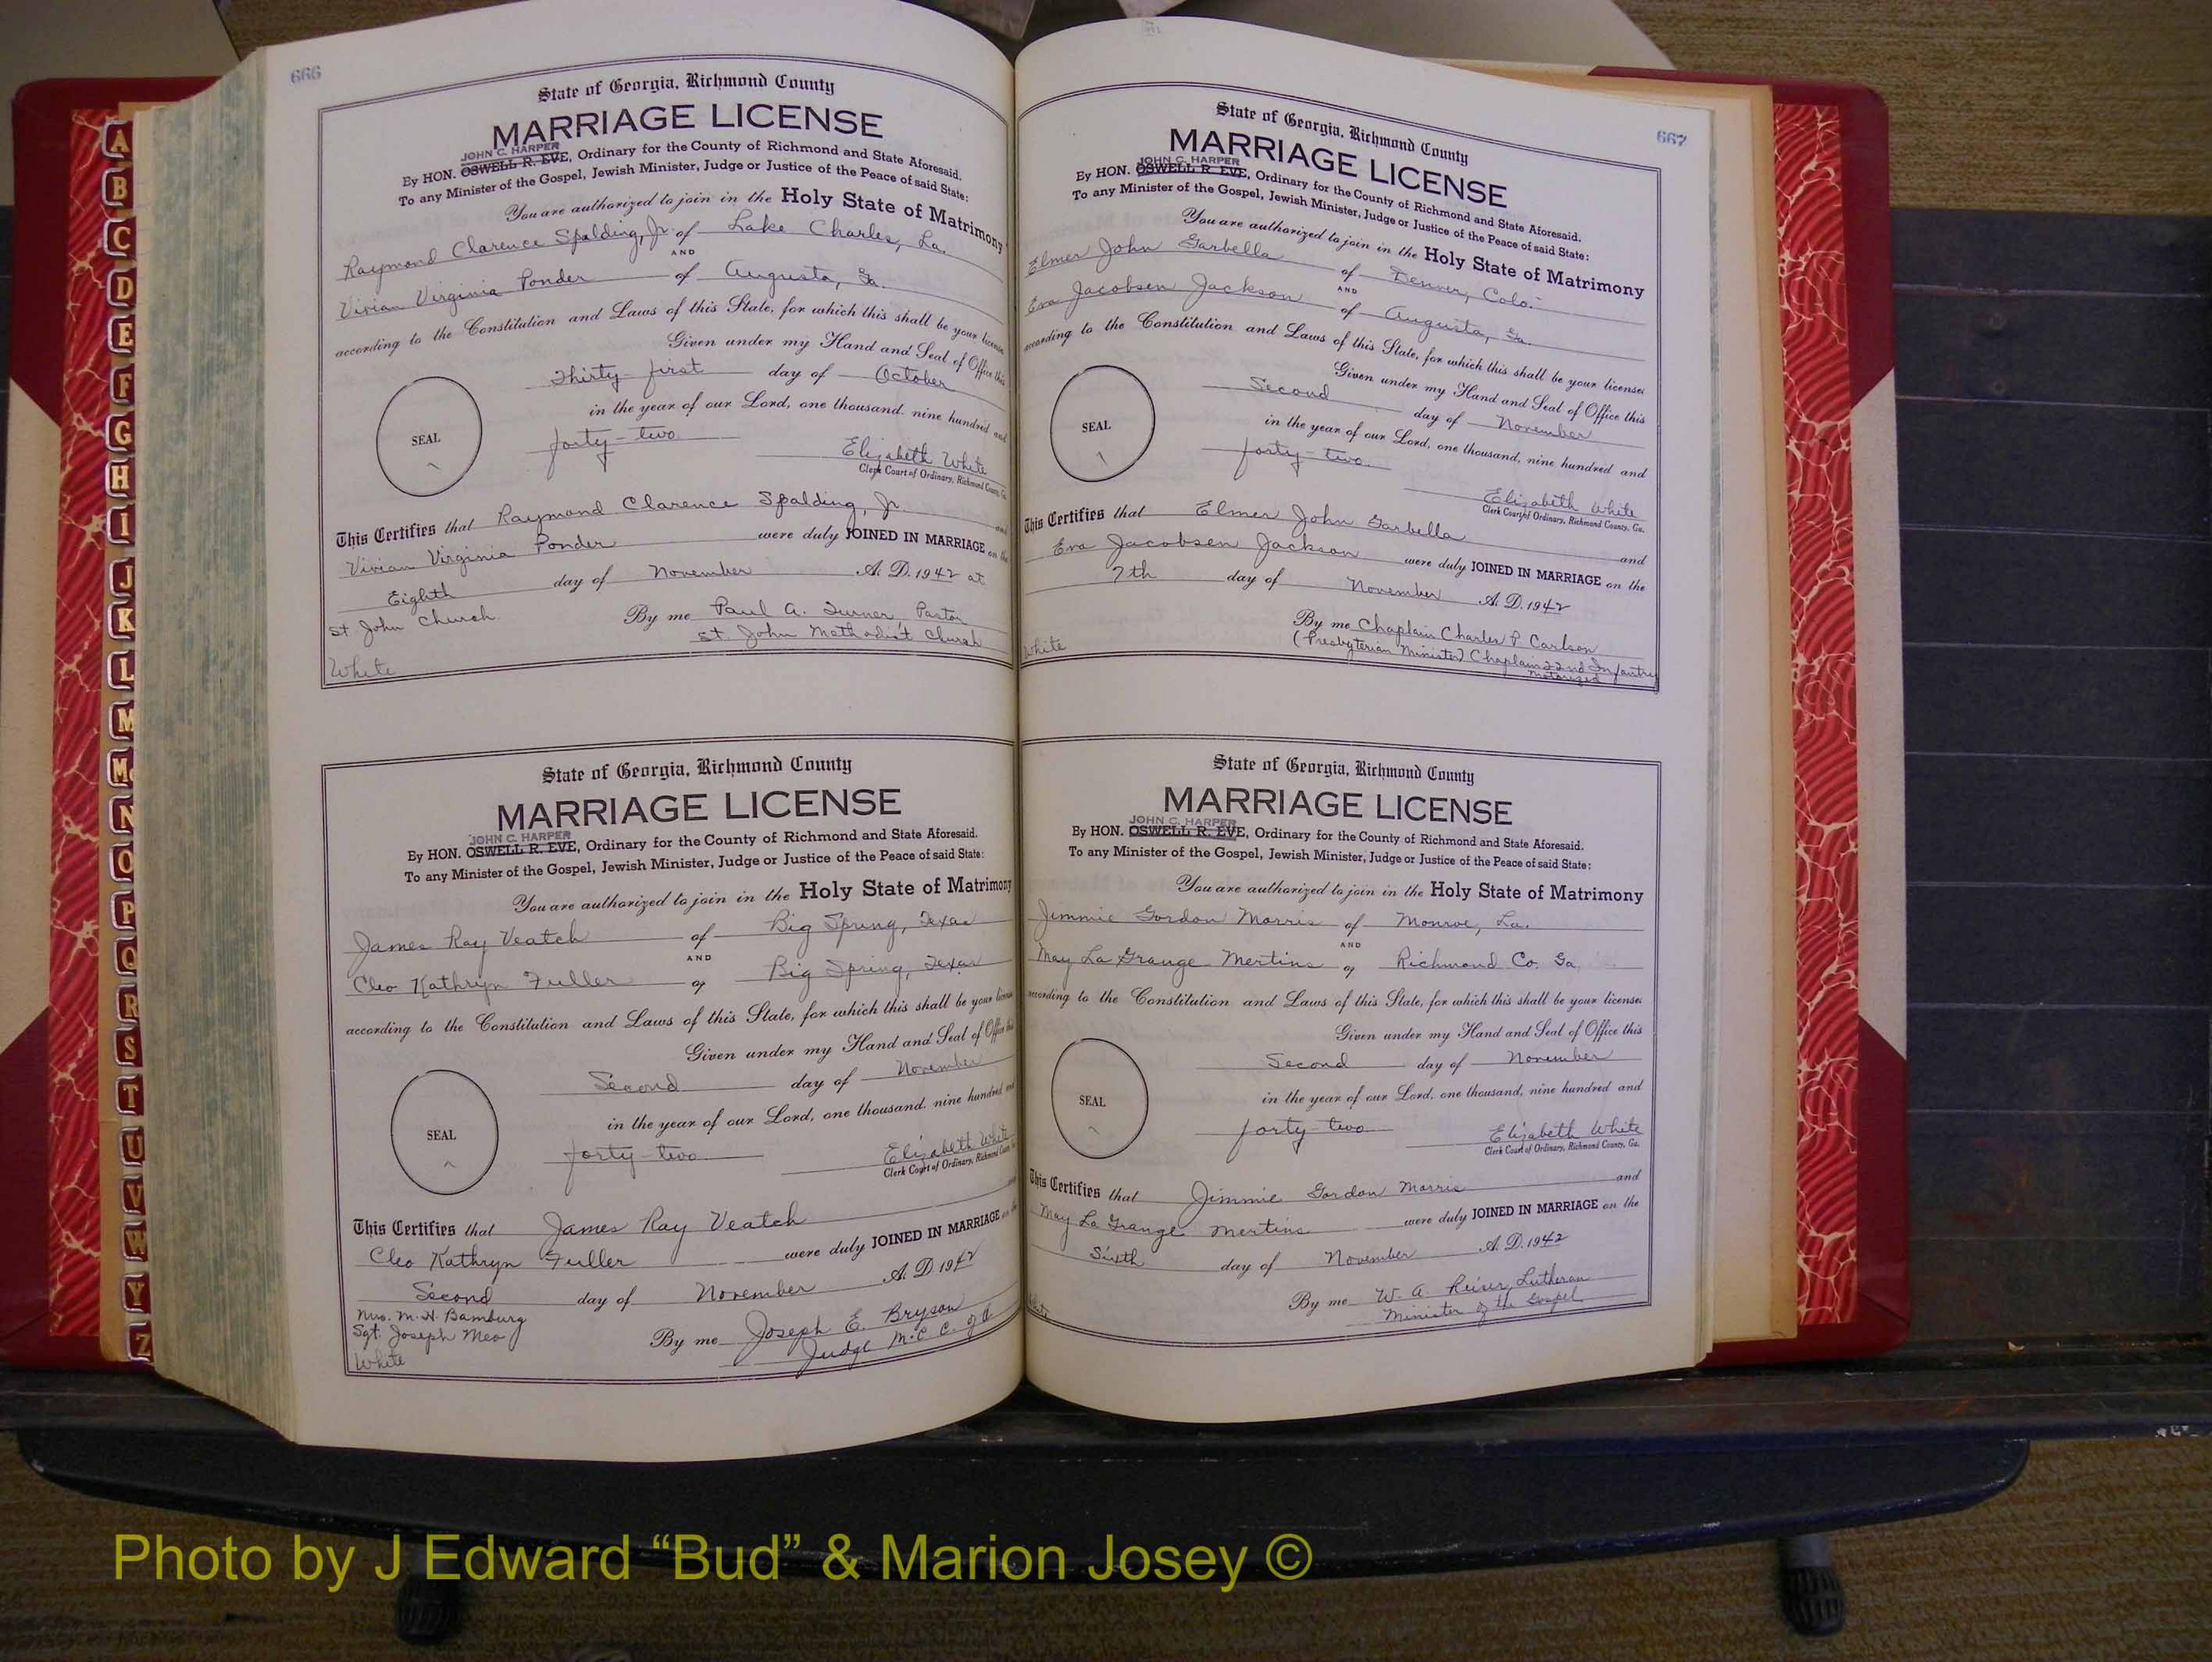 666
State of Georgia, Richmond County
MARRIAGE LICENSE
JOHN C. HARPER
By HON. OSWELL R. EVE, Ordinary for the County of Richmond and State Aforesaid.
To any Minister of the Gospel, Jewish Minister, Judge or Justice of the Peace of said State:
You are authorized to join in the Holy State of Matrimony
Raymond Clarence Spalding, Jr. of Lake Charles, La.
AND
Vivian Virginia Ponder of Augusta, Ga.
according to the Constitution and Laws of this State, for which this shall be your license
Given under my Hand and Seal of Office this
Thirty-first day of October
in the year of our Lord, one thousand, nine hundred and
SEAL
forty-two
Elizabeth White
Clerk Court of Ordinary, Richmond County, Ga.
This Certifies that Raymond Clarence Spalding, Jr and
Vivian Virginia Ponder were duly JOINED IN MARRIAGE on the
Eighth day of November A. D. 1942 at
St John Church By me Paul A. Turner, Pastor
St. John Methodist Church
White
State of Georgia, Richmond County
MARRIAGE LICENSE
JOHN C. HARPER
By HON. OSWELL R. EVE, Ordinary for the County of Richmond and State Aforesaid.
To any Minister of the Gospel, Jewish Minister, Judge or Justice of the Peace of said State:
You are authorized to join in the Holy State of Matrimony
James Ray Veatch of Big Spring, Texas
AND
Cleo Kathryn Fuller of Big Spring, Texas
according to the Constitution and Laws of this State, for which this shall be your license
Given under my Hand and Seal of Office this
Second day of November
in the year of our Lord, one thousand, nine hundred and
SEAL
forty-two
Elizabeth White
Clerk Court of Ordinary, Richmond County
This Certifies that James Ray Veatch and
Cleo Kathryn Fuller were duly JOINED IN MARRIAGE on the
Second day of November A. D. 1942
Mrs. M. H. Bamburg
Sgt. Joseph Meo
By me Joseph E. Bryson
Judge M.C.C.
White
667
State of Georgia, Richmond County
MARRIAGE LICENSE
JOHN C. HARPER
By HON. OSWELL R. EVE, Ordinary for the County of Richmond and State Aforesaid.
To any Minister of the Gospel, Jewish Minister, Judge or Justice of the Peace of said State:
You are authorized to join in the Holy State of Matrimony
Elmer John Garbella of Denver, Colo.
AND
Eva Jacobsen Jackson of Augusta, Ga.
according to the Constitution and Laws of this State, for which this shall be your license:
Given under my Hand and Seal of Office this
Second day of November
in the year of our Lord, one thousand, nine hundred and
SEAL
forty-two
Elizabeth White
Clerk Court of Ordinary, Richmond County, Ga.
This Certifies that Elmer John Garbella and
Eva Jacobsen Jackson were duly JOINED IN MARRIAGE on the
7th day of November A. D. 1942
By me Chaplain Charles P. Carlson
(Presbyterian Minister) Chaplain 22nd Infantry
Motorized
White
State of Georgia, Richmond County
MARRIAGE LICENSE
JOHN C. HARPER
By HON. OSWELL R. EVE, Ordinary for the County of Richmond and State Aforesaid.
To any Minister of the Gospel, Jewish Minister, Judge or Justice of the Peace of said State:
You are authorized to join in the Holy State of Matrimony
Jimmie Gordon Morris of Monroe, La.
AND
May La Grange Mertins of Richmond Co. Ga.
according to the Constitution and Laws of this State, for which this shall be your license:
Given under my Hand and Seal of Office this
Second day of November
in the year of our Lord, one thousand, nine hundred and
SEAL
forty-two
Elizabeth White
Clerk Court of Ordinary, Richmond County, Ga.
This Certifies that Jimmie Gordon Morris and
May La Grange Mertins were duly JOINED IN MARRIAGE on the
Sixth day of November A. D. 1942
By me W. A. Reiser, Lutheran
Minister of the Gospel
White
A
B
C
D
E
F
G
H
I
J
K
L
M
Mc
N
O
P
Q
R
S
T
U
V
W
Y
Z
Photo by J Edward “Bud” & Marion Josey ©